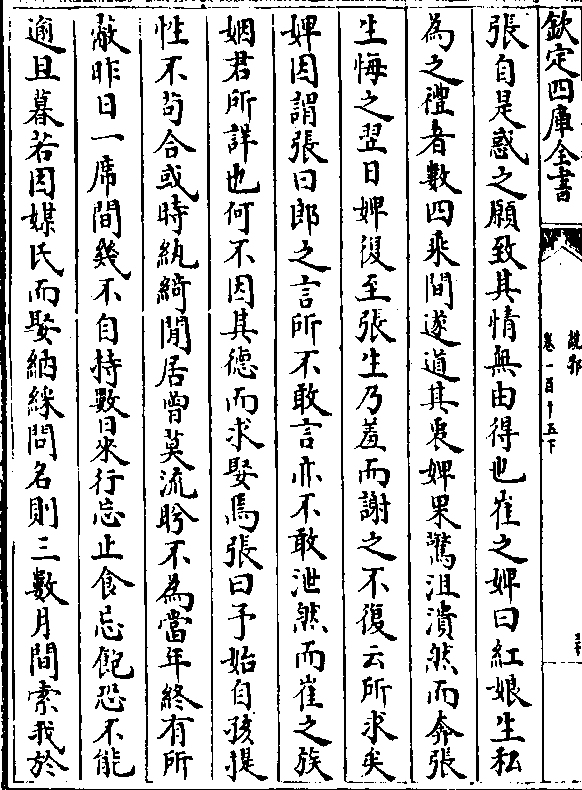 欽定四庫全書
說郛
卷一百十五下
張自是惑之願致其情無由得也崔之婢曰紅娘生私
為之禮者數四乘間遂道其衷婢果驚沮潰然而奔張
生悔之翌日婢復至張生乃羞而謝之不復云所求矣
婢因謂張曰郎之言所不敢言亦不敢泄然而崔之族
姻君所詳也何不因其德而求娶焉張曰予始自孩提
性不茍合或時紈綺閒居曾莫流盼不為當年終有所
蔽昨日一席間幾不自持數日來行忘止食忘飽恐不能
逾旦暮若因媒氏而娶納綵問名則三數月間索我於